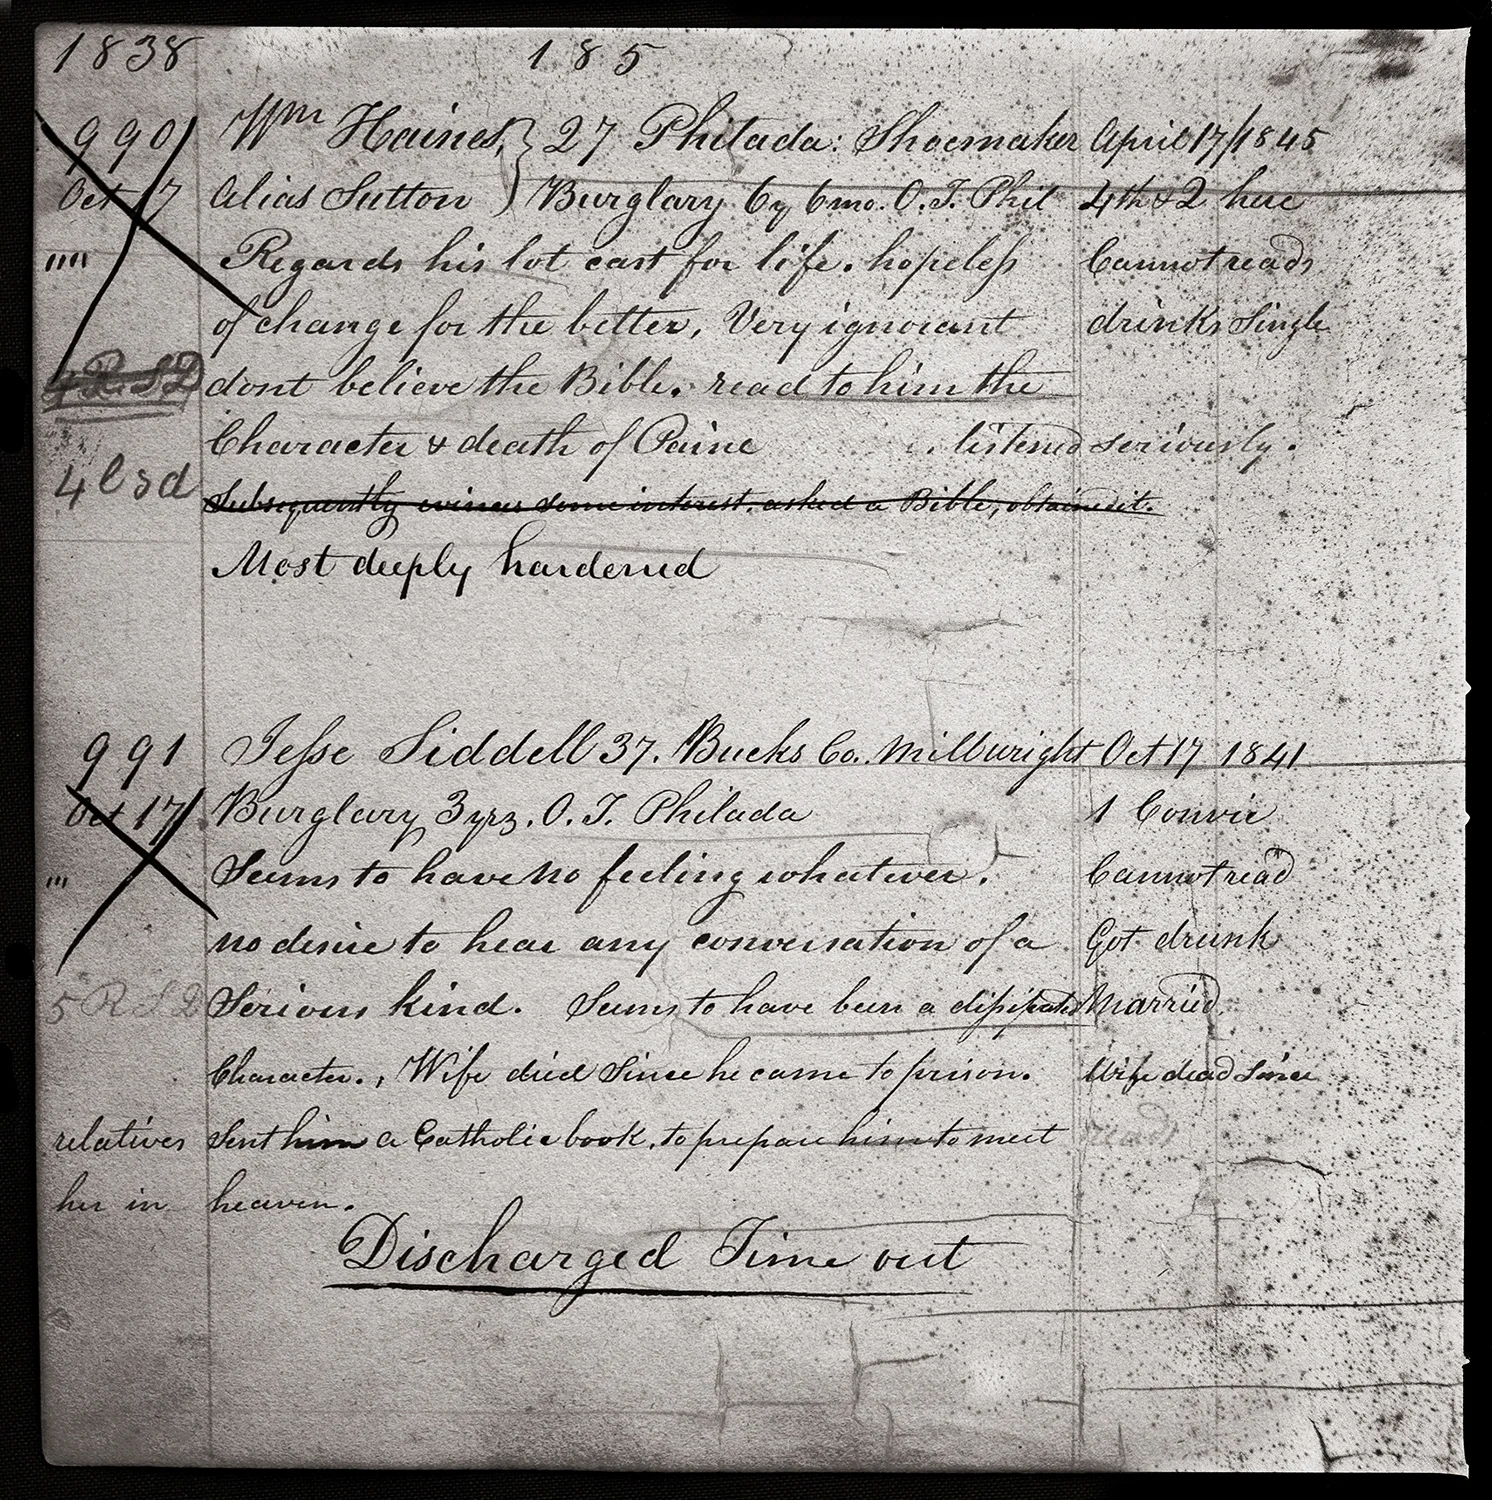 1838 185
990 Wm Haines, } 27 Philada: Shoemaker April 17/1845
Oct 17 alias Sutton ) Burglary 6y 6mo. O.T. Phil 4th & 2 here
"" Regards his lot cast for life. hopeless Cannot read
of change for the better, Very ignorant drinks Single
4 R. S D dont believe the Bible. read to him the
Character & death of Paine listened seriously.
4 l s d Subsequently evinces some interest. asked a Bible, obtained it.
Most deeply hardened
991 Jesse Siddell 37. Bucks Co. Millwright Oct 17 1841
Oct 17 Burglary 3 yrs. O. T. Philada 1 Convic
"' Seems to have no feeling whatever. Cannot read
no desire to hear any conversation of a Got drunk
5 R S D Serious kind. Seems to have been a dissipated Married
Character., Wife died Since he came to prison. Wife dead Since
relatives Sent him a Catholic book, to prepare him to meet reads
her in heaven.
Discharged Time out